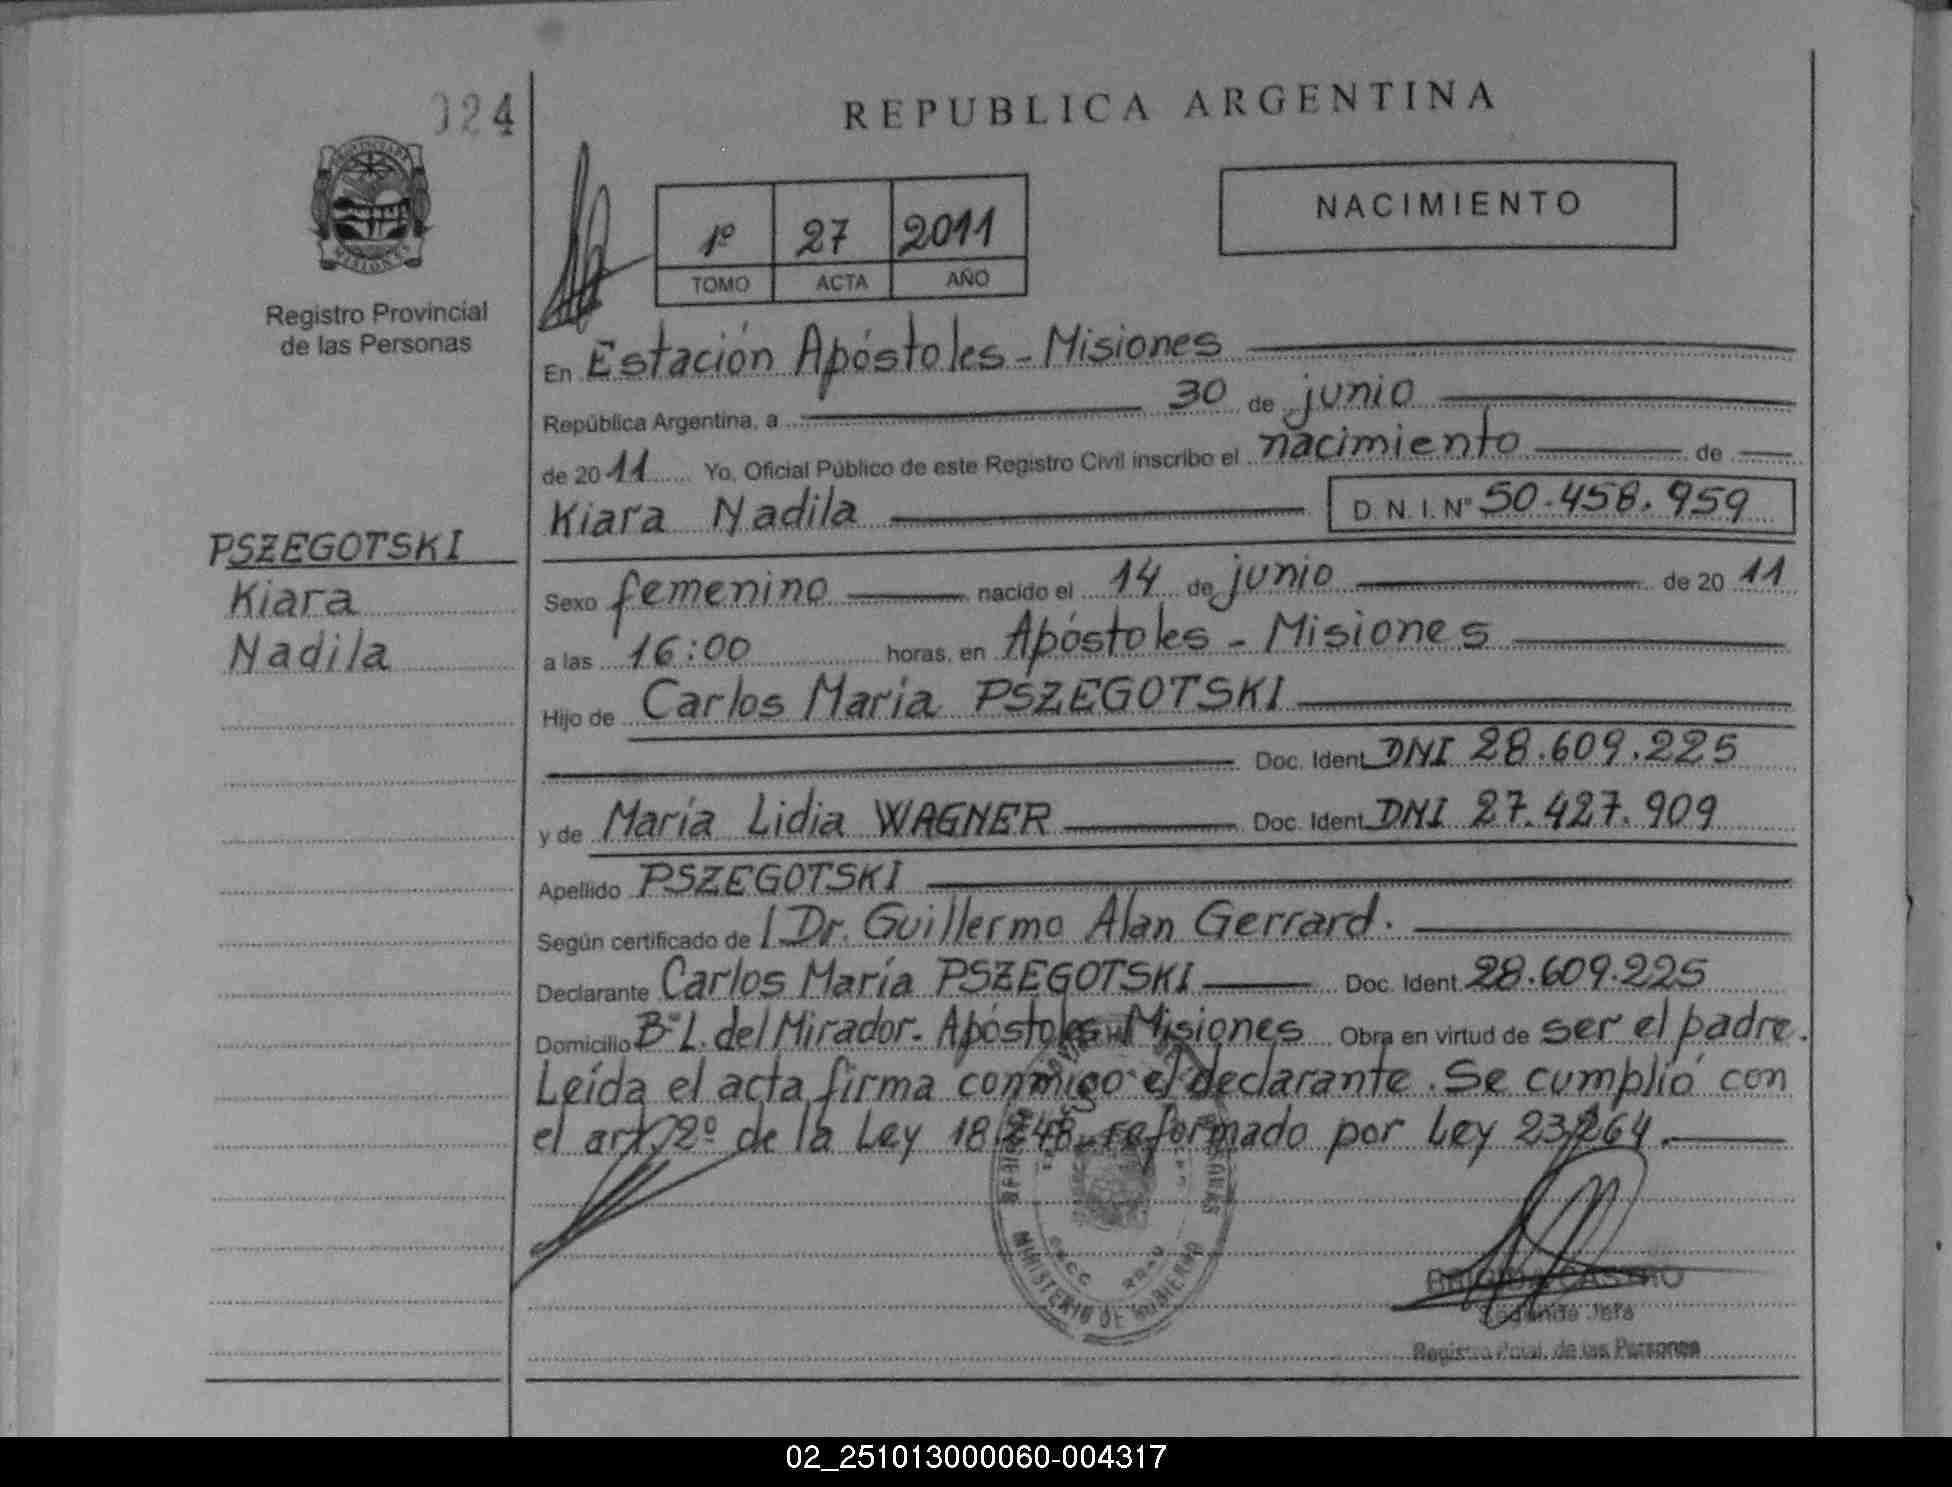 024
REPUBLICA ARGENTINA
PROVINCIA DE
MISIONES
Registro Provincial
de las Personas
1º 27 2011
TOMO ACTA AÑO
NACIMIENTO
En Estación Apóstoles - Misiones
República Argentina, a 30 de junio
de 2011 Yo, Oficial Público de este Registro Civil inscribo el nacimiento de
Kiara Nadila D.N.I. Nº 50.458.959
PSZEGOTSKI
Kiara
Nadila
Sexo femenino nacido el 14 de junio de 2011
a las 16:00 horas, en Apóstoles - Misiones
Hijo de Carlos María PSZEGOTSKI
Doc. Ident. DNI 28.609.225
y de María Lidia WAGNER Doc. Ident. DNI 27.427.909
Apellido PSZEGOTSKI
Según certificado de l Dr. Guillermo Alan Gerrard.
Declarante Carlos María PSZEGOTSKI Doc. Ident. 28.609.225
Domicilio Bº L. del Mirador - Apóstoles - Misiones Obra en virtud de ser el padre.
Leída el acta firma conmigo el declarante. Se cumplió con
el art. 2º de la Ley 18.248, reformado por Ley 23.264.
MINISTERIO DE GOBIERNO
CASTRO
Segunda Jefa
Registro Pcial. de las Personas
02_251013000060-004317